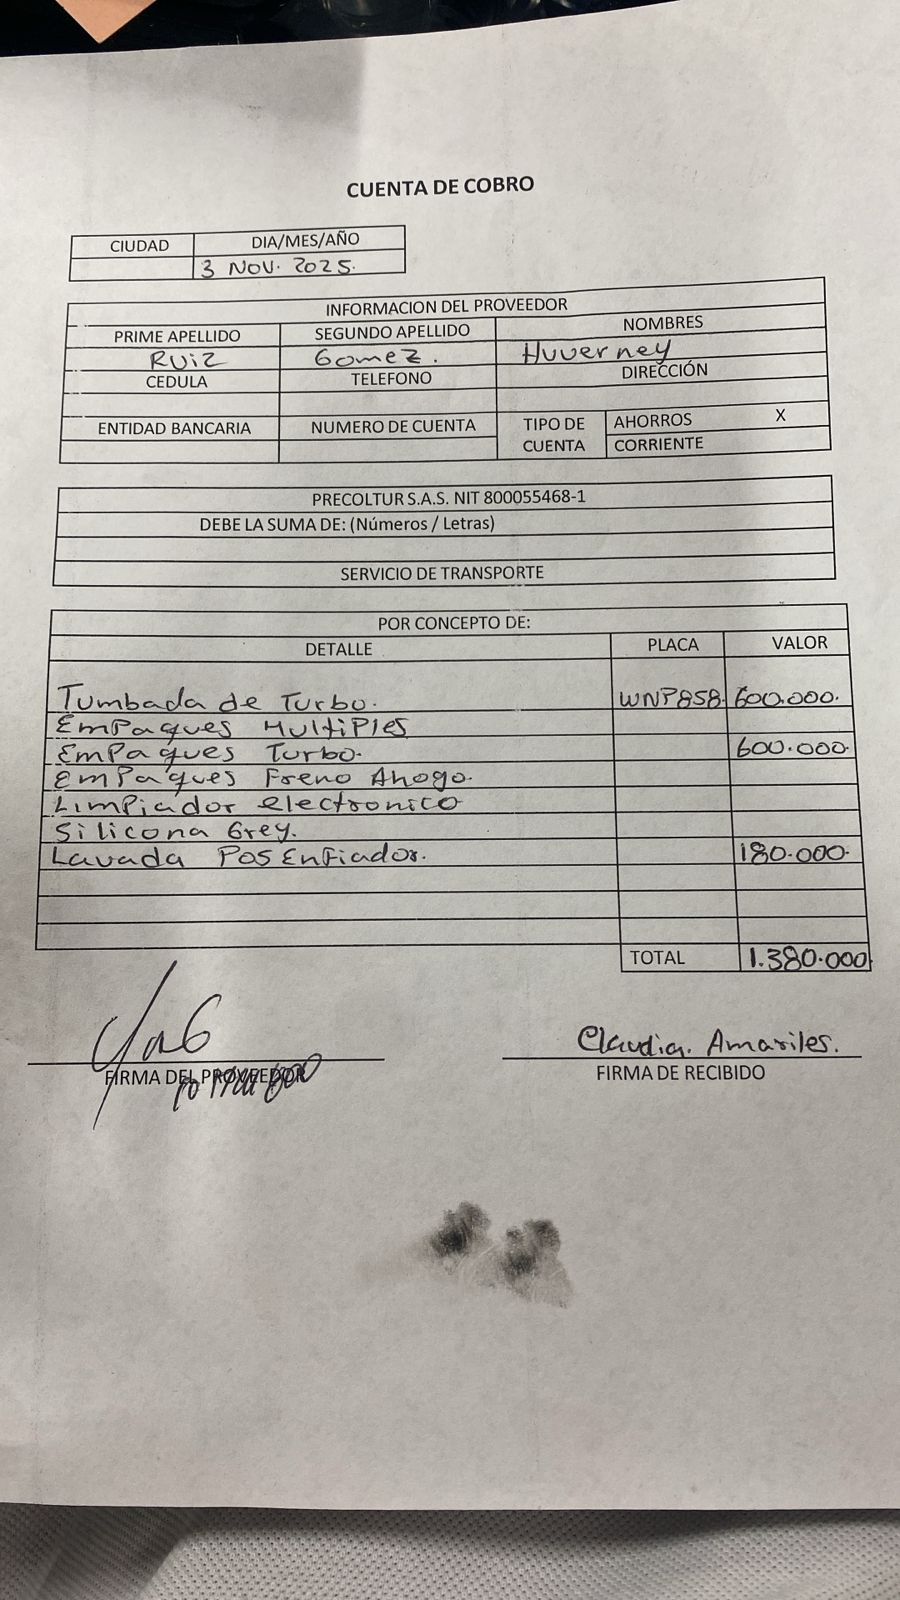 CUENTA DE COBRO
CIUDAD DIA/MES/AÑO
3 NOV. 2025.
INFORMACION DEL PROVEEDOR
PRIME APELLIDO SEGUNDO APELLIDO NOMBRES
RUIZ Gomez. Huverney
CEDULA TELEFONO DIRECCIÓN
ENTIDAD BANCARIA NUMERO DE CUENTA TIPO DE CUENTA AHORROS X
CORRIENTE
PRECOLTUR S.A.S. NIT 800055468-1
DEBE LA SUMA DE: (Números / Letras)
SERVICIO DE TRANSPORTE
POR CONCEPTO DE:
DETALLE PLACA VALOR
Tumbada de Turbo. WNP858 600.000.
EmPaques MultiPles
EmPaques Turbo. 600.000.
EmPaques Freno Ahogo.
Limpiador electronico
Silicona Grey.
Lavada PosEnfiador. 180.000.
TOTAL 1.380.000
Claudia. Amariles.
FIRMA DEL PROVEEDOR FIRMA DE RECIBIDO